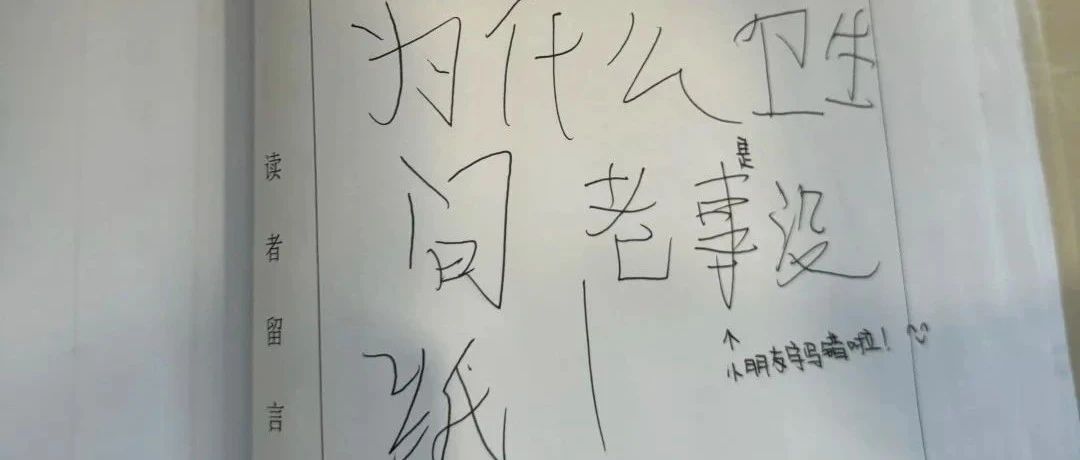 读者留言
为什么卫生
是
间老事没
纸！
↑
小朋友字写错啦！